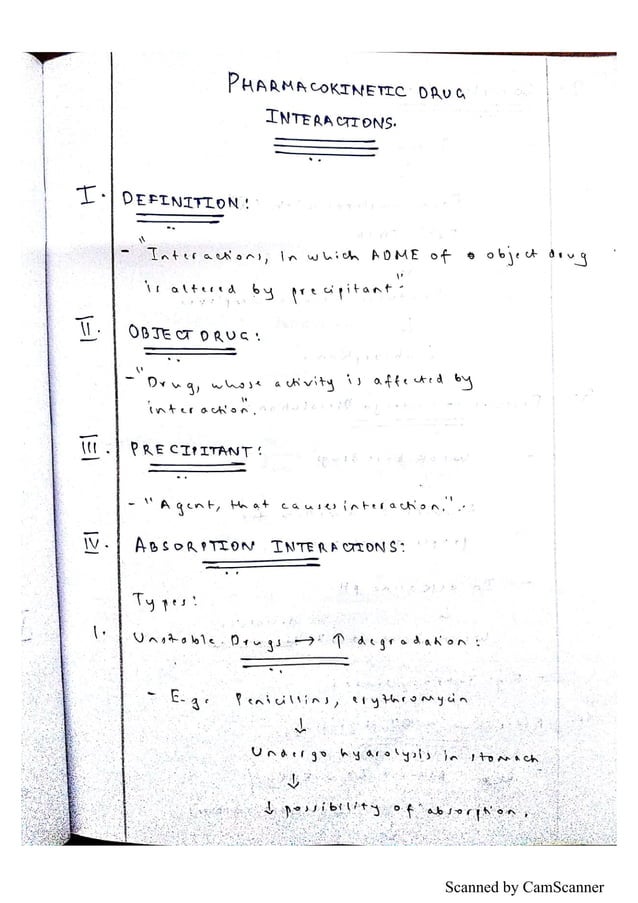 PHARMACOKINETIC DRUG
INTERACTIONS.
I. DEFINITION:
- "Interactions, in which ADME of object drug
is altered by precipitant"
II. OBJECT DRUG:
- "Drug, whose activity is affected by
interaction".
III. PRECIPITANT:
- "Agent, that causes interaction."
IV. ABSORPTION INTERACTIONS:
Types:
1. Unstable Drugs → ↑ degradation:
- E.g: Penicillins, erythromycin
↓
Undergo hydrolysis in stomach
↓
↓ possibility of absorption.
Scanned by CamScanner